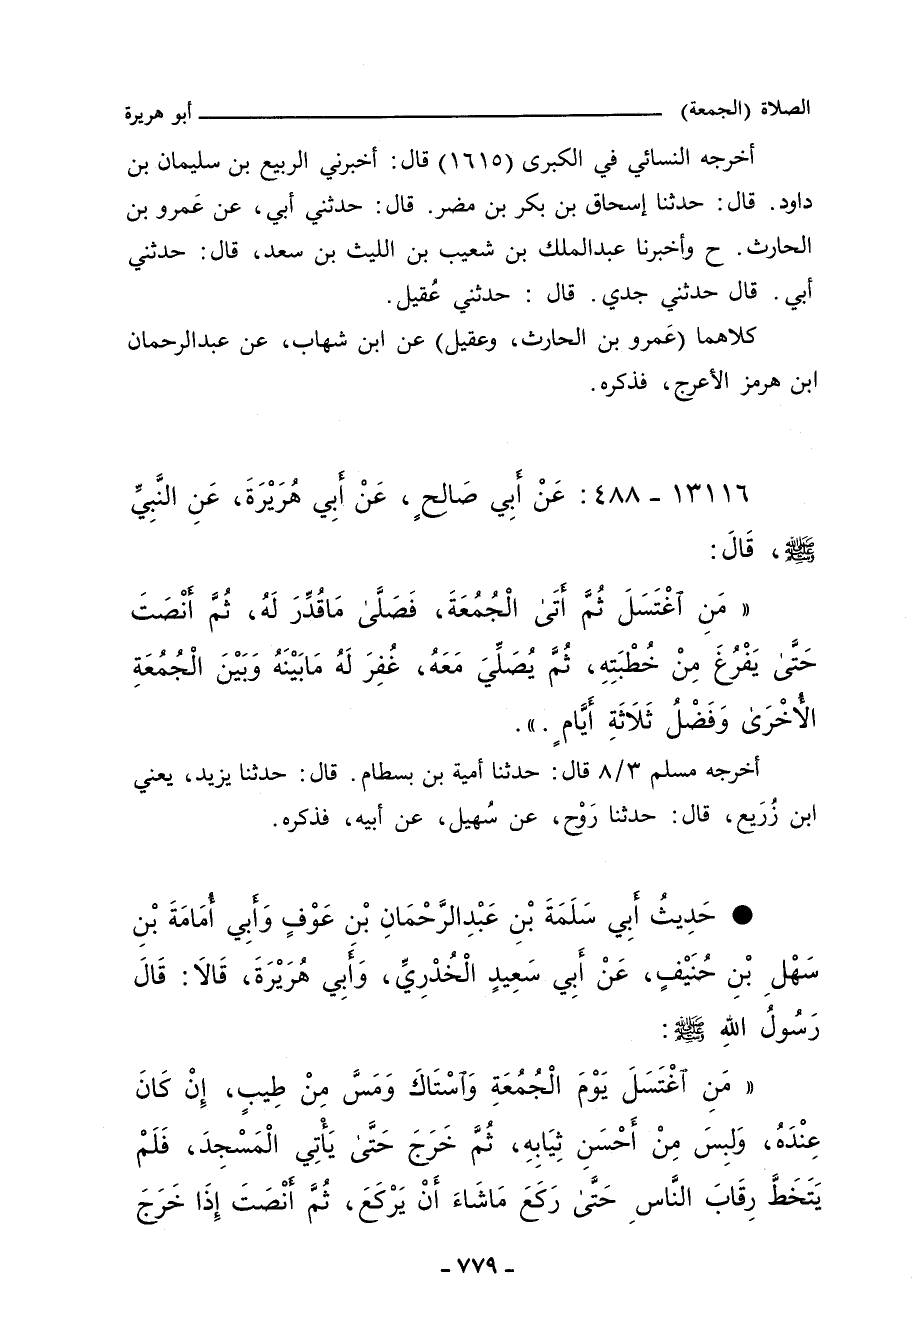 الصلاة (الجمعة) ـــــــــــــــــــــــــــــ أبو هريرة
أخرجه النسائي في الكبرى (١٦١٥) قال: أخبرني الربيع بن سليمان بن
داود. قال: حدثنا إسحاق بن بكر بن مضر. قال: حدثني أبي، عن عَمرو بن
الحارث. ح وأخبرنا عبدالملك بن شعيب بن الليث بن سعد، قال: حدثني
أبي. قال حدثني جدي. قال : حدثني عُقيل.
كلاهما (عَمرو بن الحارث، وعقيل) عن ابن شهاب، عن عبدالرحمان
ابن هرمز الأعرج، فذكره.
١٣١١٦ - ٤٨٨: عَنْ أَبِي صَالِحٍ، عَنْ أَبِي هُرَيْرَةَ، عَنِ النَّبِيِّ
ﷺ، قَالَ:
« مَنِ ٱغْتَسَلَ ثُمَّ أَتَىٰ الْجُمُعَةَ، فَصَلَّىٰ مَاقُدِّرَ لَهُ، ثُمَّ أَنْصَتَ
حَتَّىٰ يَفْرُغَ مِنْ خُطْبَتِهِ، ثُمَّ يُصَلِّيَ مَعَهُ، غُفِرَ لَهُ مَابَيْنَهُ وَبَيْنَ الْجُمُعَةِ
الْأُخْرَىٰ وَفَضْلُ ثَلَاثَةِ أَيَّامٍ.».
أخرجه مسلم ٨/٣ قال: حدثنا أمية بن بسطام. قال: حدثنا يزيد، يعني
ابن زُرَيع، قال: حدثنا رَوْح، عن سُهيل، عن أبيه، فذكره.
● حَدِيثُ أَبِي سَلَمَةَ بْنِ عَبْدِالرَّحْمَانِ بْنِ عَوْفٍ وَأَبِي أُمَامَةَ بْنِ
سَهْلِ بْنِ حُنَيْفٍ، عَنْ أَبِي سَعِيدٍ الْخُدْرِيِّ، وَأَبِي هُرَيْرَةَ، قَالَا: قَالَ
رَسُولُ اللهِ ﷺ:
« مَنِ ٱغْتَسَلَ يَوْمَ الْجُمُعَةِ وَٱسْتَاكَ وَمَسَّ مِنْ طِيبٍ، إِنْ كَانَ
عِنْدَهُ، وَلَبِسَ مِنْ أَحْسَنِ ثِيَابِهِ، ثُمَّ خَرَجَ حَتَّىٰ يَأْتِي الْمَسْجِدَ، فَلَمْ
يَتَخَطَّ رِقَابَ النَّاسِ حَتَّىٰ رَكَعَ مَاشَاءَ أَنْ يَرْكَعَ، ثُمَّ أَنْصَتَ إِذَا خَرَجَ
- ٧٧٩ -